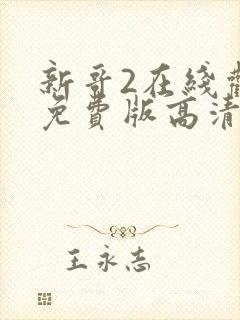 新哥2在綫觀
免費版高清
王永志